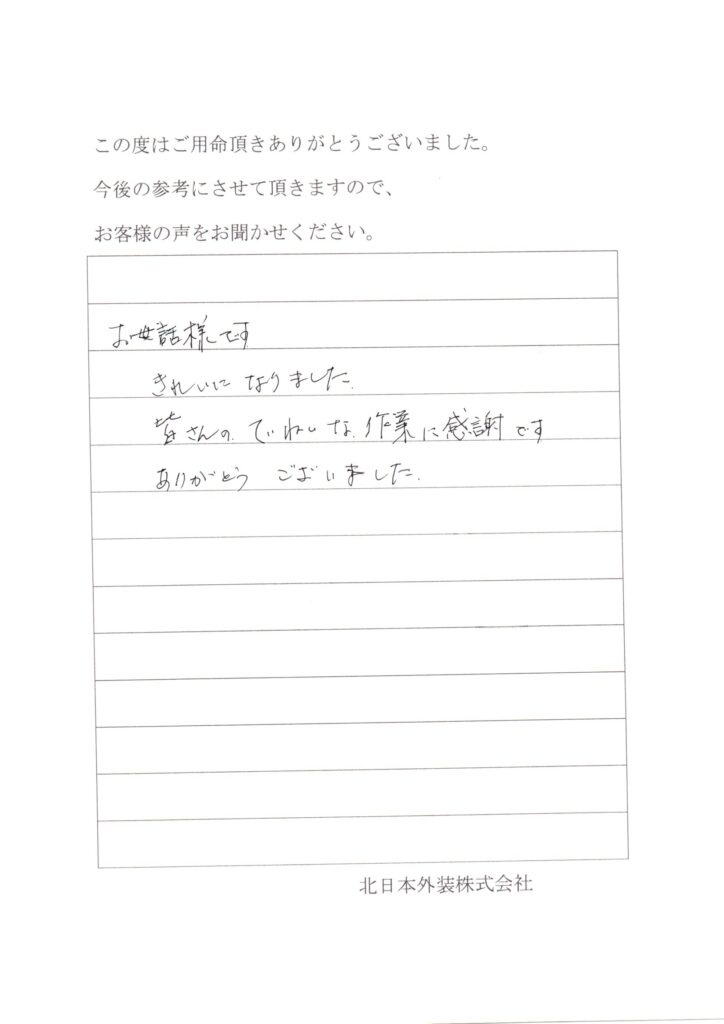 この度はご用命頂きありがとうございました。
今後の参考にさせて頂きますので、
お客様の声をお聞かせください。
お世話様です
きれいになりました.
皆さんの.ていねいな.作業に感謝です
ありがとう ございました.
北日本外装株式会社